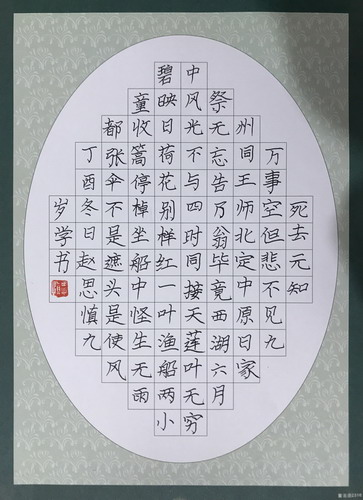 死去元知
万事空但悲不见九
州同王师北定中原日家
祭无忘告乃翁毕竟西湖六月
中风光不与四时同接天莲叶无穷
碧映日荷花别样红一叶渔船两小
童收篙停棹坐船中怪生无雨
都张伞不是遮头是使风
丁酉冬日赵思慎九
岁学书